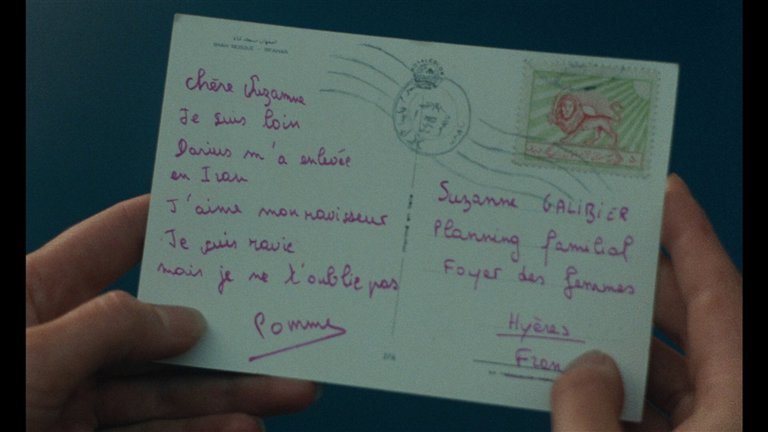 SHAH MOSQUE - ISFAHAN
Chère Suzanne
Je suis loin
Darius m'a enlevée
en Iran
J'aime mon ravisseur
Je suis ravie
mais je ne t'oublie pas
Pomme
Suzanne GALIBIER
Planning familial
Foyer des femmes
Hyères
Fran